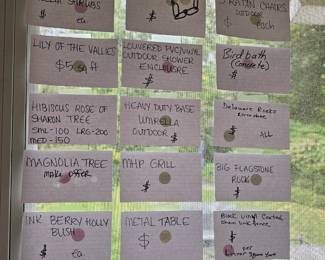 SHRUBS
$ ea.
$
CHAIRS
OUTDOOR
$ each
LILY OF THE VALLIES
$5 sq ft
LOUVERED PVC/VINYL
OUTDOOR SHOWER
ENCLOSURE
$
Bird bath
(concrete)
$
HIBISCUS ROSE OF
SHARON TREE
SML-100 LRG-200
MED-150
HEAVY DUTY BASE
UMBRELLA
OUTDOOR $
Delaware Rocks
$ ALL
MAGNOLIA TREE
MAKE OFFER
$
MHP GRILL
$
BIG FLAGSTONE
ROCK
$
INK BERRY HOLLY
BUSH
$ ea
METAL TABLE
$
Black vinyl Coated
Chain link fence
$ per
Linear